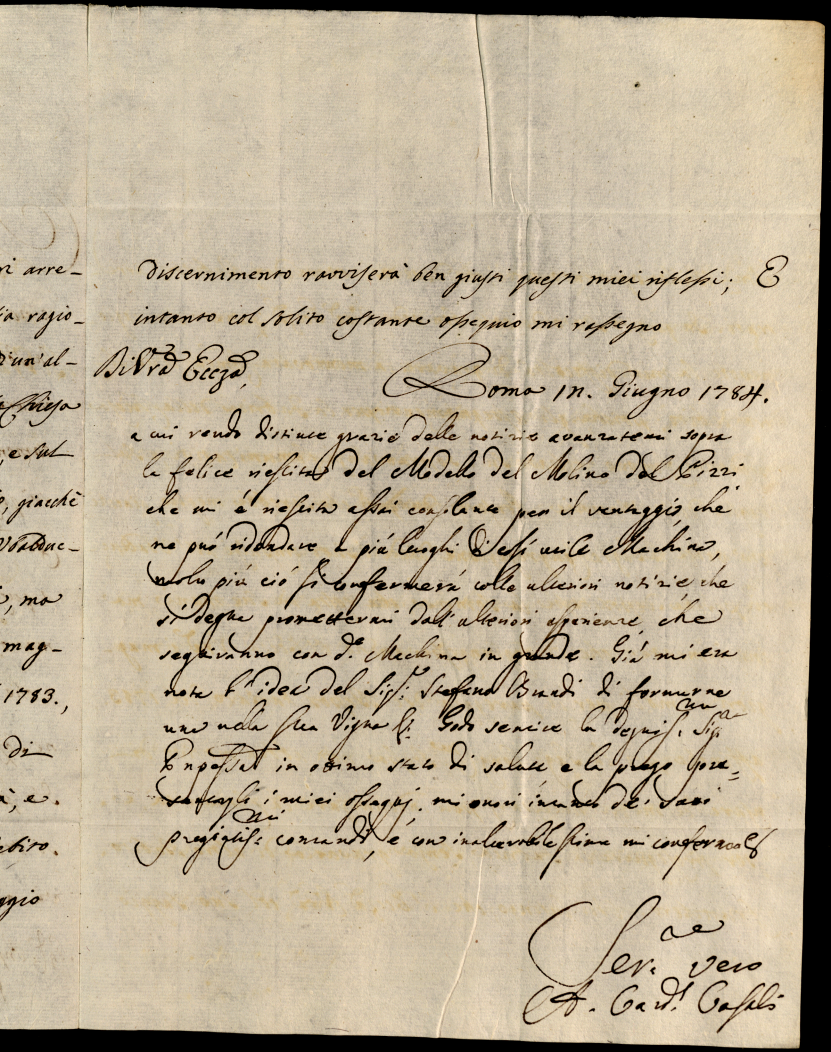 ri arre-
ia ragio-
d'un'al-
Chiesa
, e sul
, giacchè
, ma
mag-
1783.,
di
à, e.
ggio
discernimento ravviserà ben giusti questi miei riflessi; E
intanto col solito costante ossequio mi rassegno
Di Vrã Eccză
Roma Giugno 1784.
a cui rendo distinte grazie delle notizie avanzatemi sopra
la felice riescita del Modello del Molino del Pizzi
che mi é riescita assai consolante per il vantaggio, che
ne può ridondare a più luoghi di così utile Machina,
molto più ciò si confermerà colle ulteriori notizie, che
si degna promettermi dall'ulteriori esperienze, che
seguiranno con d.ª Machina in grande. Già mi era
nota l'idea del Sig.r Stefano Brandi di formarne
una nella sua Vigna Godo sentire la degnis.ma Sig.ra
in ottimo stato di salute e la prego pre=
sentargli i miei ossequj. mi onori intanto dei suoi
pregiatis.mi comandi, e con inalterabile stima mi confermo
Ser.e vero
A. Card.l Casali